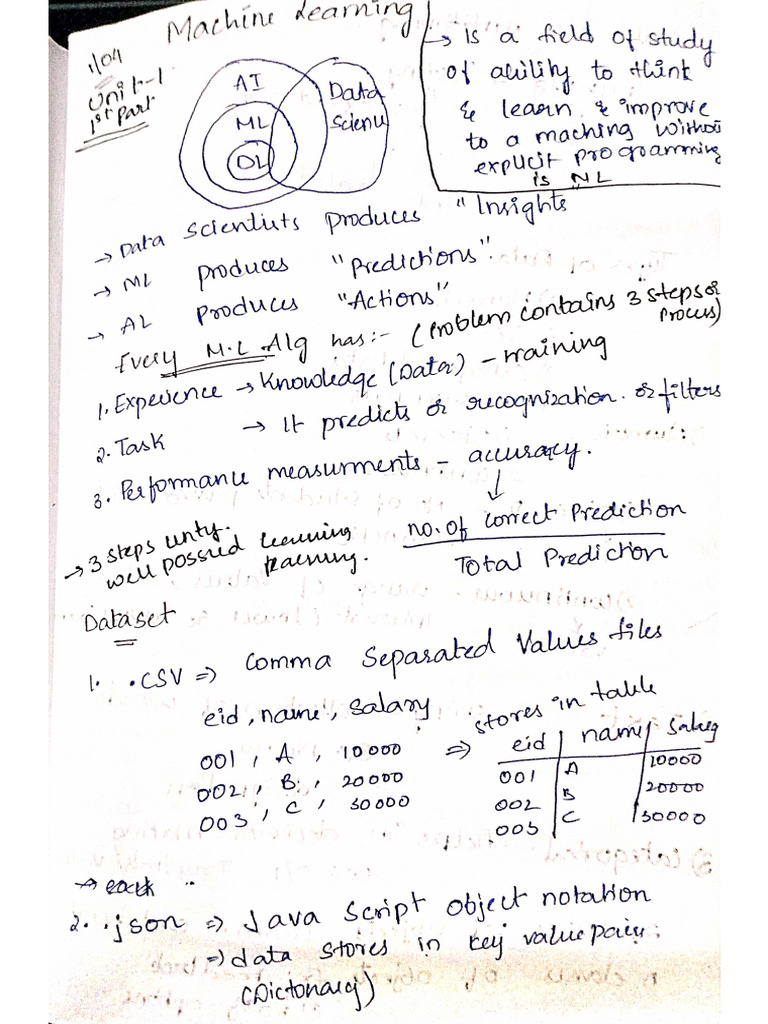 Machine Learning
1/04
Unit-1
1st Part
AI
ML
DL
Data
Scienu
→ Is a field of study
of ability to think
& learn & improve
to a maching without
explicit programming
is ML
→ Data Scientists produces "Insights
→ ML produces "Predictions".
→ AL produces "Actions"
Every M.L Alg has:- (Problem contains 3 steps or
Process)
1. Experience → Knowledge (Data) - training
2. Task → It predicts or recognization or filters
3. Performance measurments - accuracy.
↓
no. of Correct Prediction
Total Prediction
→ 3 steps unty.
well possied learning
Dataset
1. .CSV ⇒ Comma Separated Values files
eid, name, Salary
001, A, 10000
002, B, 20000
003, C, 30000
⇒ stores in table
eid | name | Salary
001 | A | 10000
002 | B | 20000
003 | C | 30000
2. .json ⇒ Java Script Object notation
⇒ data stores in key value pair.
(Dictonary)